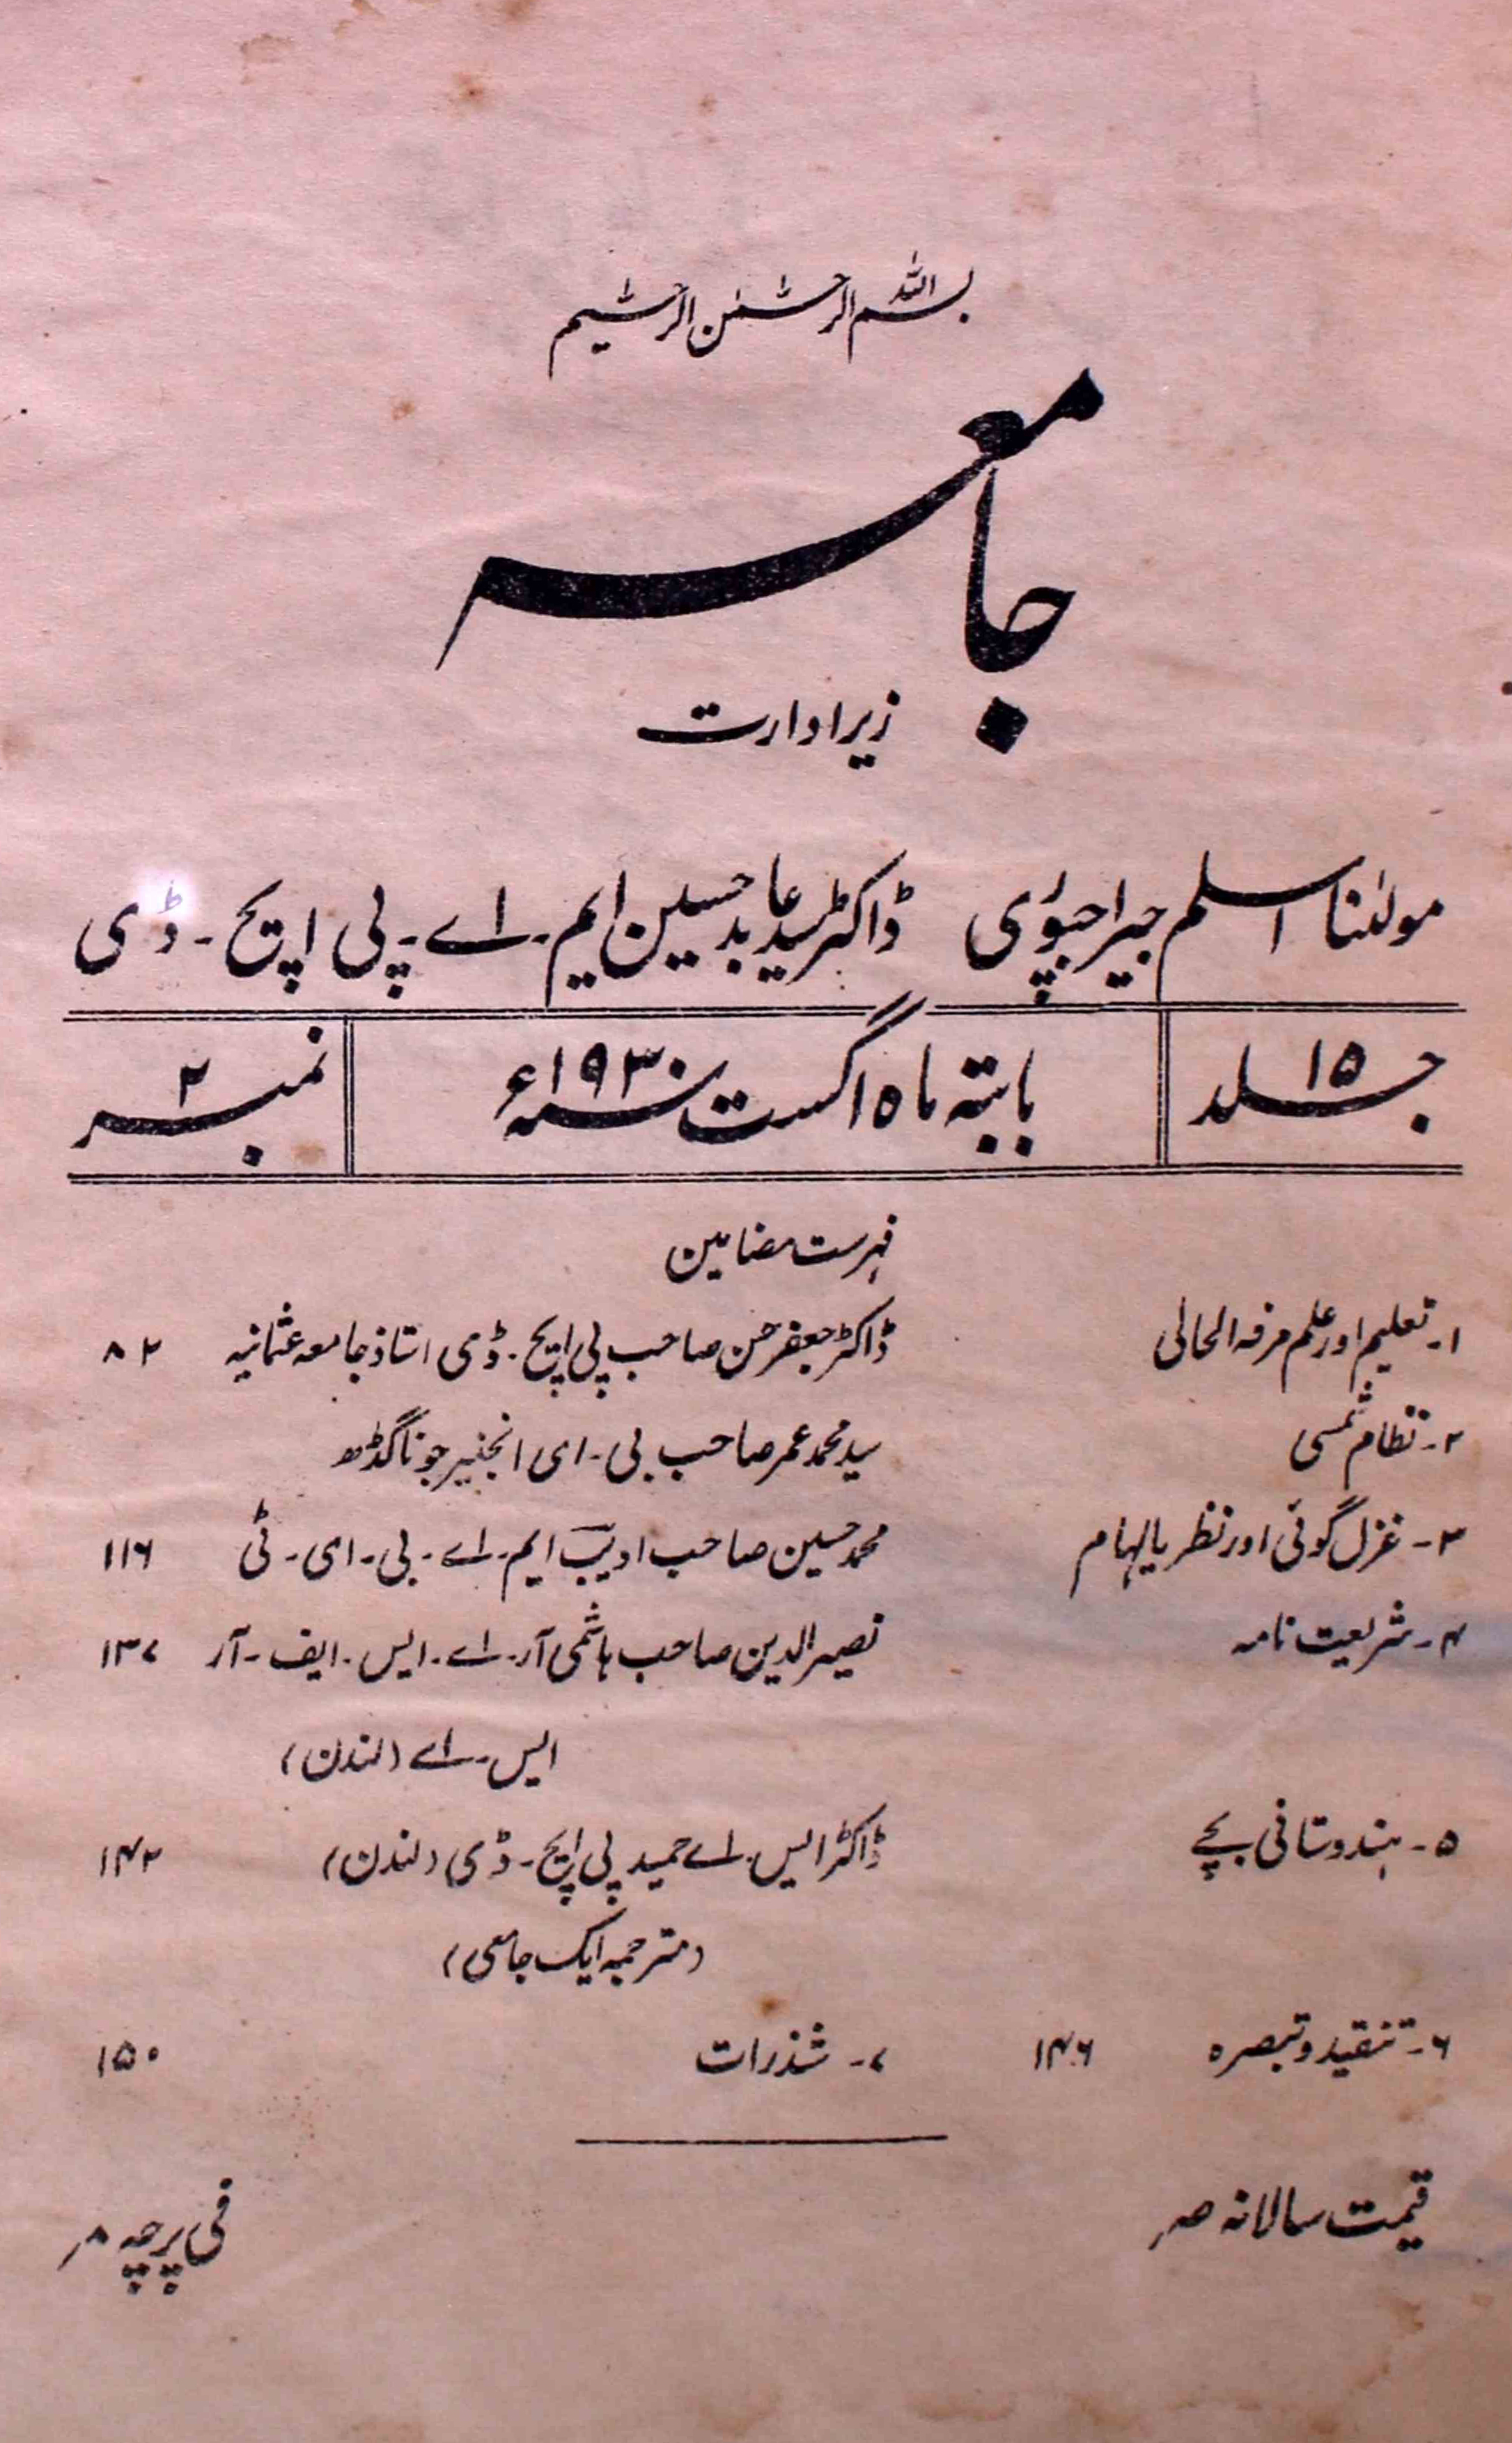 بسم اللہ الرحمٰن الرحیم
جامعہ
زیر ادارت
مولٰنا اسلم جیراجپوری ڈاکٹر سید عابد حسین ایم۔ اے۔ پی ایچ۔ ڈی
جلد ۱۵ بابتہ ماہ اگست سنہ ۱۹۳۰ء نمبر ۲
فہرست مضامین
۱۔ تعلیم اور علم مرفہ الحالی ڈاکٹر جعفر حسن صاحب پی ایچ۔ ڈی استاذ جامعہ عثمانیہ ۸۲
۲۔ نظام شمسی سید محمد عمر صاحب بی۔ ای انجنیر جوناگڈھ
۳۔ غزل گوئی اور نظریہ الہام محمد حسین صاحب ادیب ایم۔ اے۔ بی۔ ای۔ ٹی ۱۱۶
۴۔ شریعت نامہ نصیر الدین صاحب ہاشمی آر۔ اے۔ ایس۔ ایف۔ آر ۱۳۷
ایس۔ اے (لندن)
۵۔ ہندوستانی بچے ڈاکٹر ایس۔ اے حمید پی ایچ۔ ڈی (لندن) ۱۴۲
(مترجمہ ایک جامعی)
۶۔ تنقید و تبصرہ ۱۴۶ ۷۔ شذرات ۱۵۰
قیمت سالانہ صہ فی پرچہ ۸ر